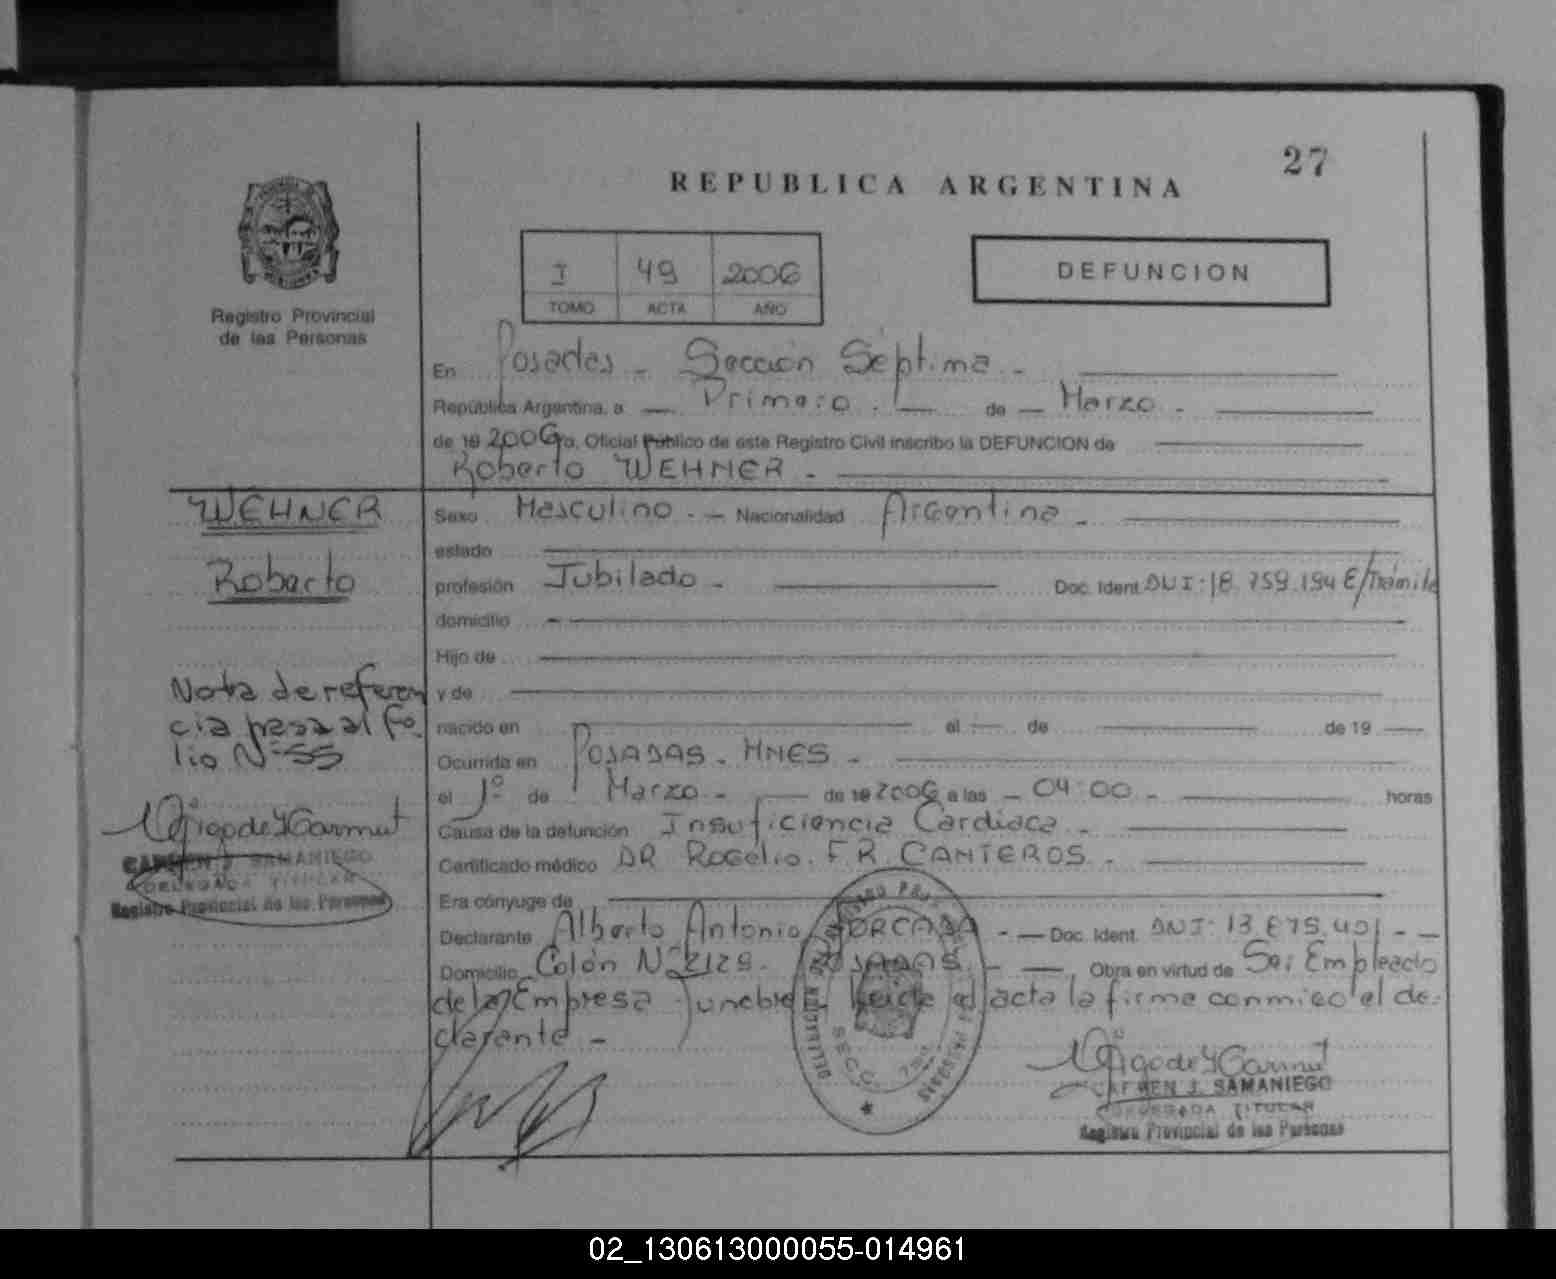 27
REPUBLICA ARGENTINA
Registro Provincial
de las Personas
I 49 2006
TOMO ACTA AÑO
DEFUNCION
En Posadas - Sección Séptima -
República Argentina, a Primero. de Marzo -
de 19 2006 Oficial Público de este Registro Civil inscribo la DEFUNCION de
Roberto WEHNER -
WEHNER
Roberto
Sexo Masculino. - Nacionalidad Argentina -
estado
profesión Jubilado - Doc. Ident. DNI: 18.759.194 E/Trámite
domicilio
Hijo de
y de
nacido en el de de 19
Nota de referen
cia pasa al fo
lio Nº 55
Ocurrida en POSADAS - MNES -
el 1º de Marzo - de 19 2006 a las - 04:00 - horas
Causa de la defunción Insuficiencia Cardiaca -
Certificado médico DR Rogelio. F R. CANTEROS -
Era cónyuge de
Declarante Alberto Antonio FORCADA - - Doc. Ident. DNI: 13.875.401 - -
Domicilio Colón Nº 2129. POSADAS. - Obra en virtud de Ser Empleado
de la Empresa funebre - Leida el acta la firma conmigo el de-
clarante -
CARMEN J. SAMANIEGO
DELEGADA TITULAR
Registro Provincial de las Personas
SECC. 7ma.
CARMEN J. SAMANIEGO
DELEGADA TITULAR
Registro Provincial de las Personas
02_130613000055-014961